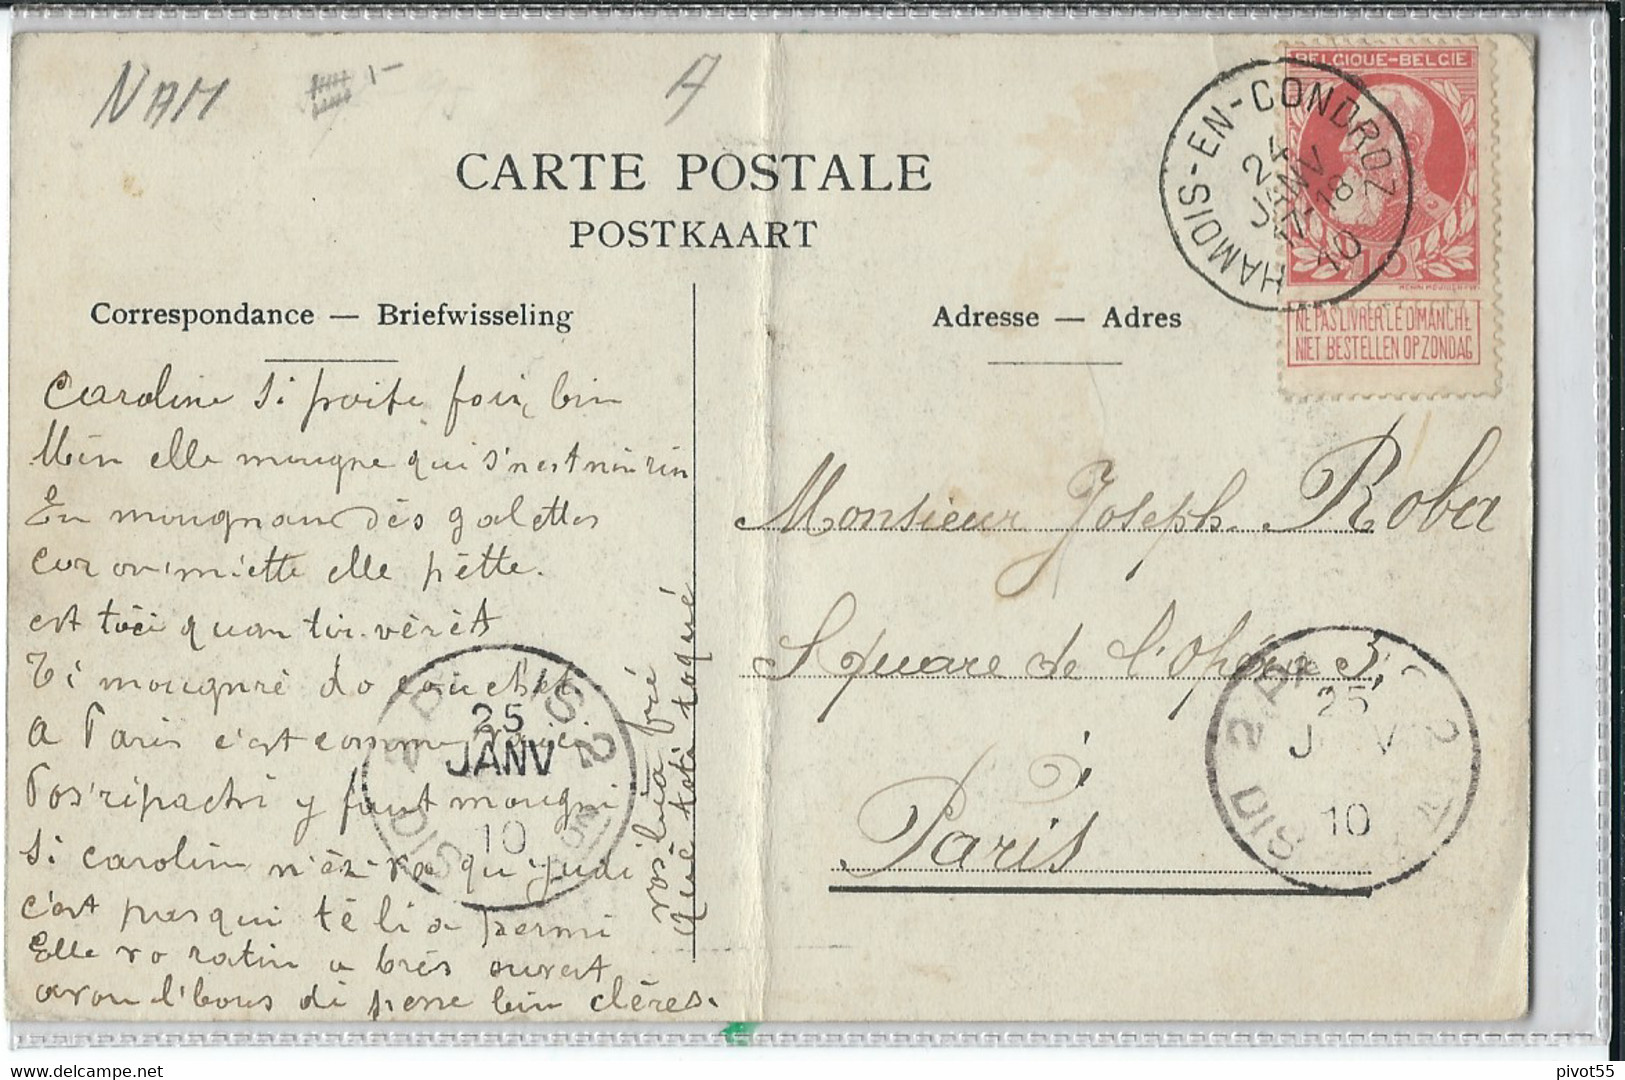 NAM
1-
A
CARTE POSTALE
POSTKAART
Correspondance — Briefwisseling
Adresse — Adres
BELGIQUE-BELGIE
10
NE PAS LIVRER LE DIMANCHE
NIET BESTELLEN OP ZONDAG
HAMOIS-EN-CONDROZ
24
JANV
17-18
10
Caroline si porte foir bin
Min elle mougne qui s'nest nin rin
En mougnan dès galettes
cur on miette elle pette.
est toci quan tir vèrèt
Ti mougnrè do couchet
A Paris c'est comme voici
Pos'ripachi y faut mougni
Si carolin n'èz-va qu'judi
c'est pasqui tè li a permi
Elle vo ratin a brès ouvert
avou l'bous di pesse bin clères.
vos
qué koti toqué
25
JANV
10
Monsieur Joseph Rober
Square de l'Opéra 5,
à
Paris
25
10
pivot55